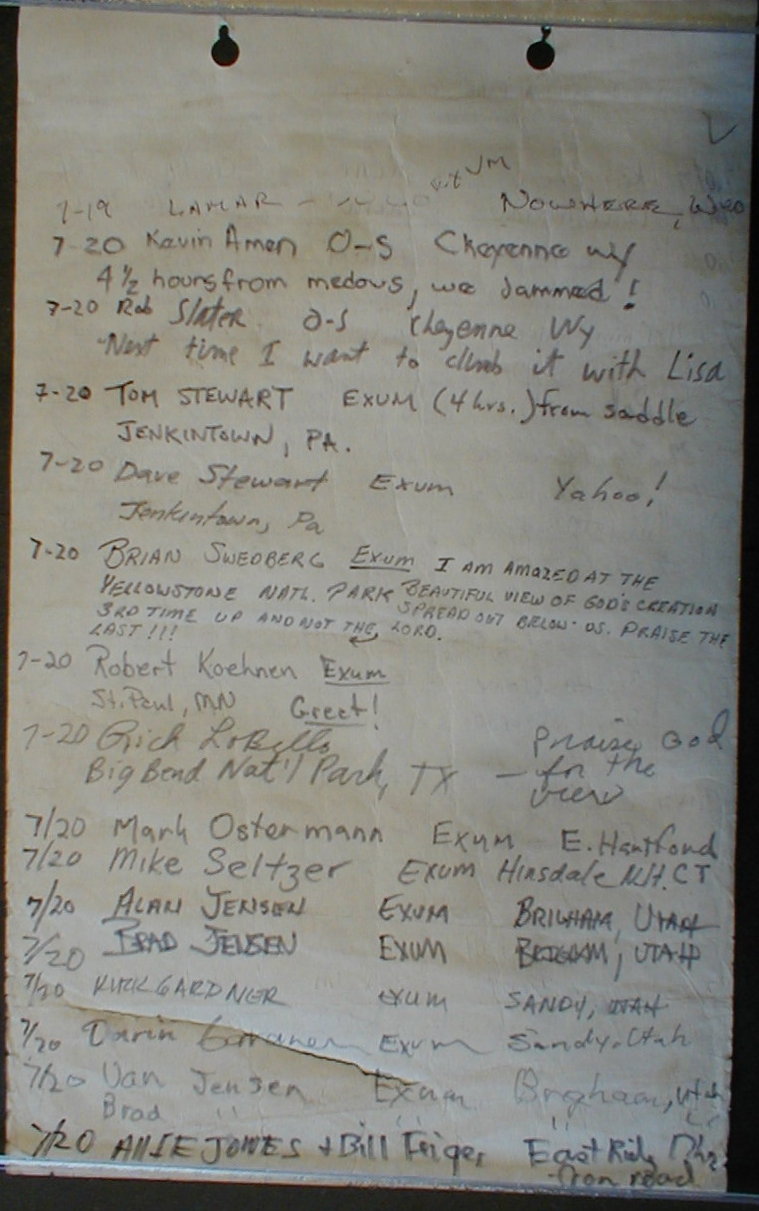 EXUM
7-19 LAMAR NOWHERE, WYO
7-20 Kevin Amen O-S Cheyenne Wy
4 1/2 hours from medows, we jammed!
7-20 Rob Slater O-S Cheyenne Wy
"Next time I want to climb it with Lisa
7-20 TOM STEWART EXUM (4 hrs.) from saddle
JENKINTOWN, PA.
7-20 Dave Stewart Exum Yahoo!
Jenkintown, Pa
7-20 BRIAN SWEDBERG EXUM I AM AMAZED AT THE
YELLOWSTONE NATL. PARK BEAUTIFUL VIEW OF GOD'S CREATION
3RD TIME UP AND NOT THE SPREAD OUT BELOW US. PRAISE THE
LAST!!! LORD.
7-20 Robert Koehnen Exum
St. Paul, MN Great!
7-20 Rick LoBello Praise God
Big Bend Nat'l Park, TX - for the
view
7/20 Mark Ostermann Exum E. Hartford
7/20 Mike Seltzer Exum Hinsdale N.H. CT
7/20 ALAN JENSEN EXUM BRIGHAM, UTAH
7/20 BRAD JENSEN EXUM BRIGHAM, UTAH
7/20 KIRK GARDNER EXUM SANDY, UTAH
7/20 Darin Exum Sandy, Utah
7/20 Van Jensen Exum Brigham, Utah
Brad " " " " " "
7/20 JONES + Bill East Ridge
from road